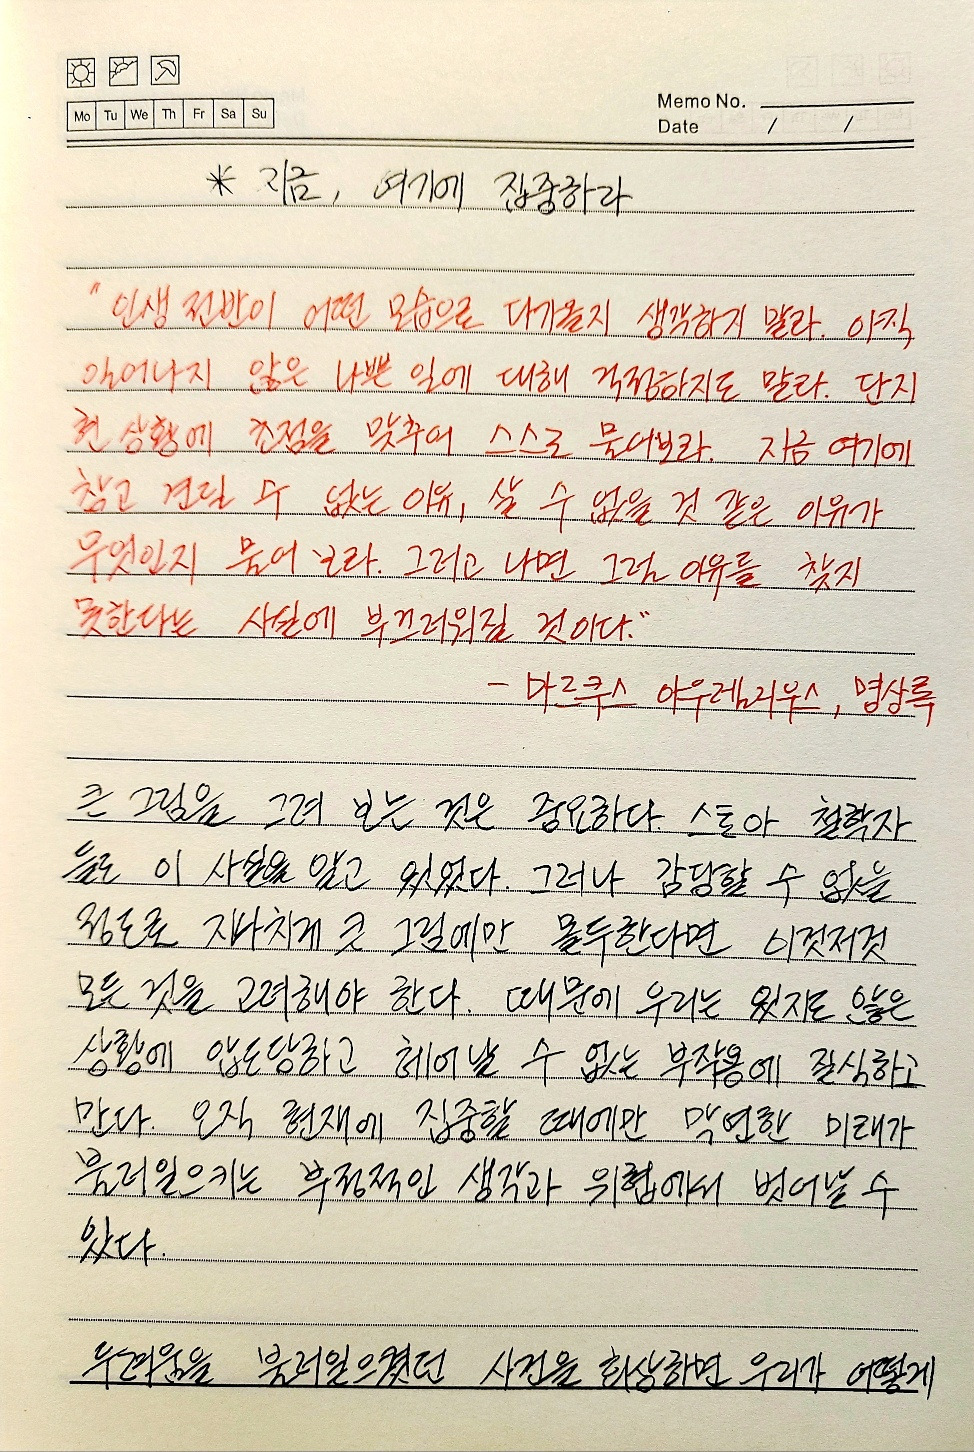 Mo Tu We Th Fr Sa Su
Memo No.
Date / /
* 지금, 여기에 집중하라
"인생 전반이 어떤 모습으로 다가올지 생각하지 말라. 아직
일어나지 않은 나쁜 일에 대해 걱정하지도 말라. 단지
현 상황에 초점을 맞추어 스스로 물어보라. 지금 여기에
참고 견딜 수 없는 이유, 살 수 없을 것 같은 이유가
무엇인지 물어 보라. 그러고 나면 그럴 이유를 찾지
못한다는 사실에 부끄러워질 것이다."
- 마르쿠스 아우렐리우스, 명상록
큰 그림을 그려 보는 것은 중요하다. 스토아 철학자
들도 이 사실을 알고 있었다. 그러나 감당할 수 없을
정도로 지나치게 큰 그림에만 몰두한다면 이것저것
모든 것을 고려해야 한다. 때문에 우리는 있지도 않은
상황에 압도당하고 헤어날 수 없는 부작용에 질식하고
만다. 오직 현재에 집중할 때에만 막연한 미래가
불러일으키는 부정적인 생각과 위협에서 벗어날 수
있다.
두려움을 불러일으켰던 사건을 회상하면 우리가 어떻게